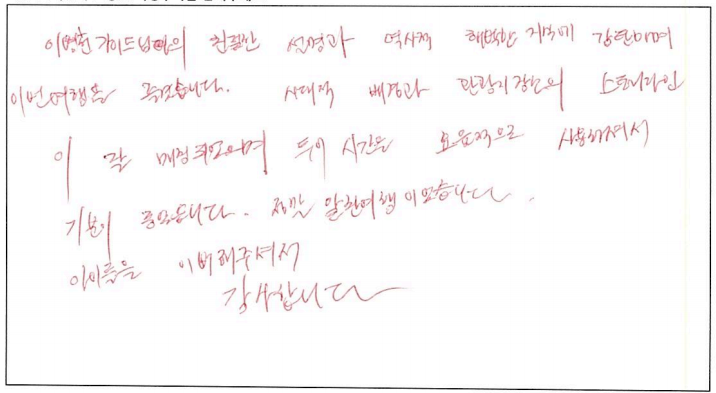 가이드님의 친절한 설명과 역사적 해박한 지식에 감탄하며
이번여행은 즐거웠습니다. 시대적 배경과 관광지장소의 스토리라인
이 잘 매칭되었으며 투어 시간을 효율적으로 사용하셔서
기분이 좋았습니다. 정말 알찬여행이였습니다.
아이들을 이뻐해주셔서
감사합니다